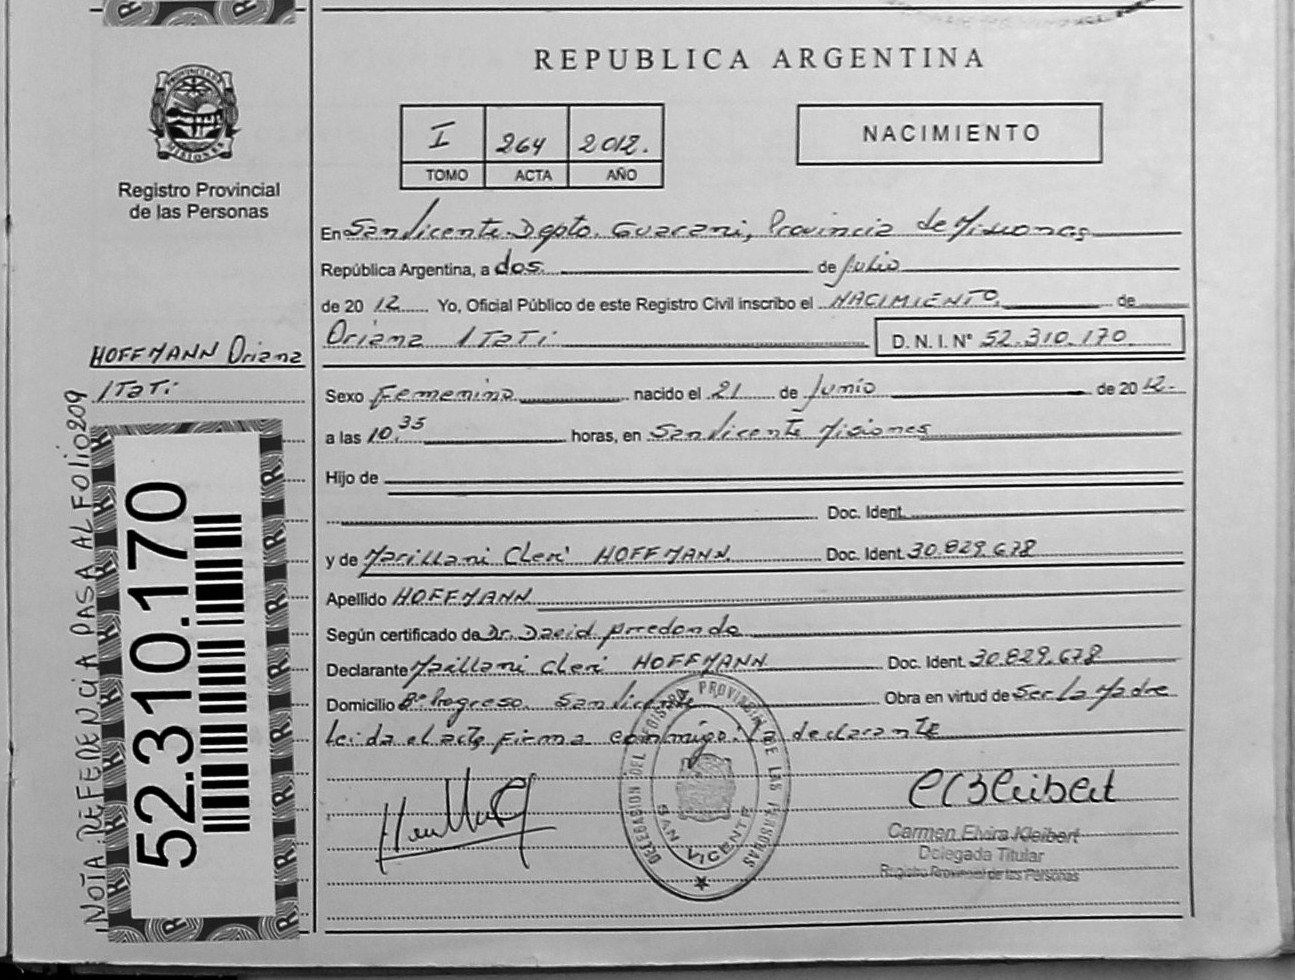 REPUBLICA ARGENTINA
PROVINCIA DE
MISIONES
Registro Provincial
de las Personas
I 264 2012.
TOMO ACTA AÑO
NACIMIENTO
En San Vicente. Dpto. Guarani, Provincia de Misiones
República Argentina, a dos de Julio
de 2012 Yo, Oficial Público de este Registro Civil inscribo el NACIMIENTO de
Oriana Itati D. N. I. N° 52.310.170
HOFFMANN Oriana
Itati
Sexo Femenino nacido el 21 de Junio de 2012.
a las 10,35 horas, en San Vicente Misiones
Hijo de
Doc. Ident.
y de Marillani Cleri HOFFMANN Doc. Ident. 30.829.678
Apellido HOFFMANN
Según certificado de Dr. David Arredondo
Declarante Marillani Cleri HOFFMANN Doc. Ident. 30.829.678
Domicilio B° Progreso. San Vicente Obra en virtud de Ser La Madre
Leida el acta firma conmigo: La declarante
NOTA REFERENCIA PASA AL FOLIO 209
52.310.170
DELEGACION DEL REGISTRO PROVINCIAL DE LAS PERSONAS
SAN VICENTE
Carmen Elvira Kleibert
Delegada Titular
Registro Provincial de las Personas